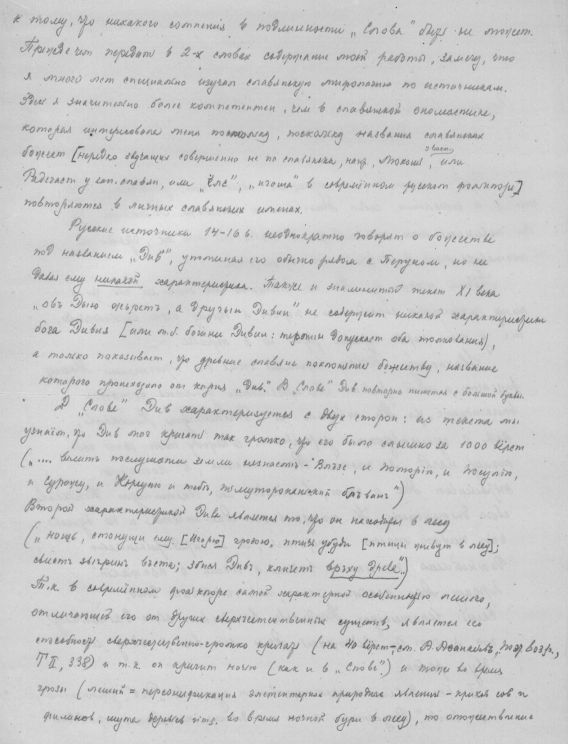 к тому, что никакого сомнения в подлинности „Слова" быть не может.
Прежде чем передать в 2-х словах содержание моей работы, замечу, что
я много лет специально изучал славянскую мифологию по источникам.
я значительно более компетентен, чем в славянской ономастике,
которая интересовала меня постольку, поскольку названия славянских
божеств [нередко звучащие совершенно не по славянски, напр. Мокошь, или
Радегаст у зап. славян, или в современном русском фольклоре]
повторяются в личных славянских именах.
Русские источники 14-16 в. неоднократно говорят о божестве
под названием „Див", упоминая его обычно рядом с Перуном, но не
давая ему никакой характеристики. Также и знаменитый текст XI века
„овъ Дыю жъретъ, а друзыи Дивии" не содержит никакой характеристики
бога Дивия [или м.б. богини Дивии: термин допускает оба толкования],
а только показывает, что древние славяне поклонялись божеству, название
которого происходило от корня „Див." В „Слове" Див повторно пишется с большой буквы.
В „Слове" Див характеризуется с двух сторон: из текста мы
узнаём, что Див мог кричать так громко, что его было слышно за 1000 вёрст
(„.... велитъ послушати земли незнаемѣ - Влъзѣ, и Поморию, и Посулию,
и Сурожу, и Корсуню и тебѣ, тьмутороканский блъванъ")
Второй характеристикой Дива является то, что он находится в лесу
(„нощь, стонущи ему [Игорю] грозою, птичь убуди [птицы живут в лесу];
свистъ звѣринъ въста; збися Дивъ, кличетъ връху древа".)
Т.к. в современном фольклоре самой характерной особенностью лешего,
отличающей его от других сверхъестественных существ, является его
способность сверхъестественно-громко кричать (на 40 вёрст - см. В. Афанасьев, Поэт. Воззр.,
Т II, 338) и т.к. он кричит ночью (как и в „Слове") и тоже во время
грозы (леший = персонификация элементарных природных явления - криков сов и
филинов, шума деревьев и т.д. во время ночной бури в лесу), то отождествление